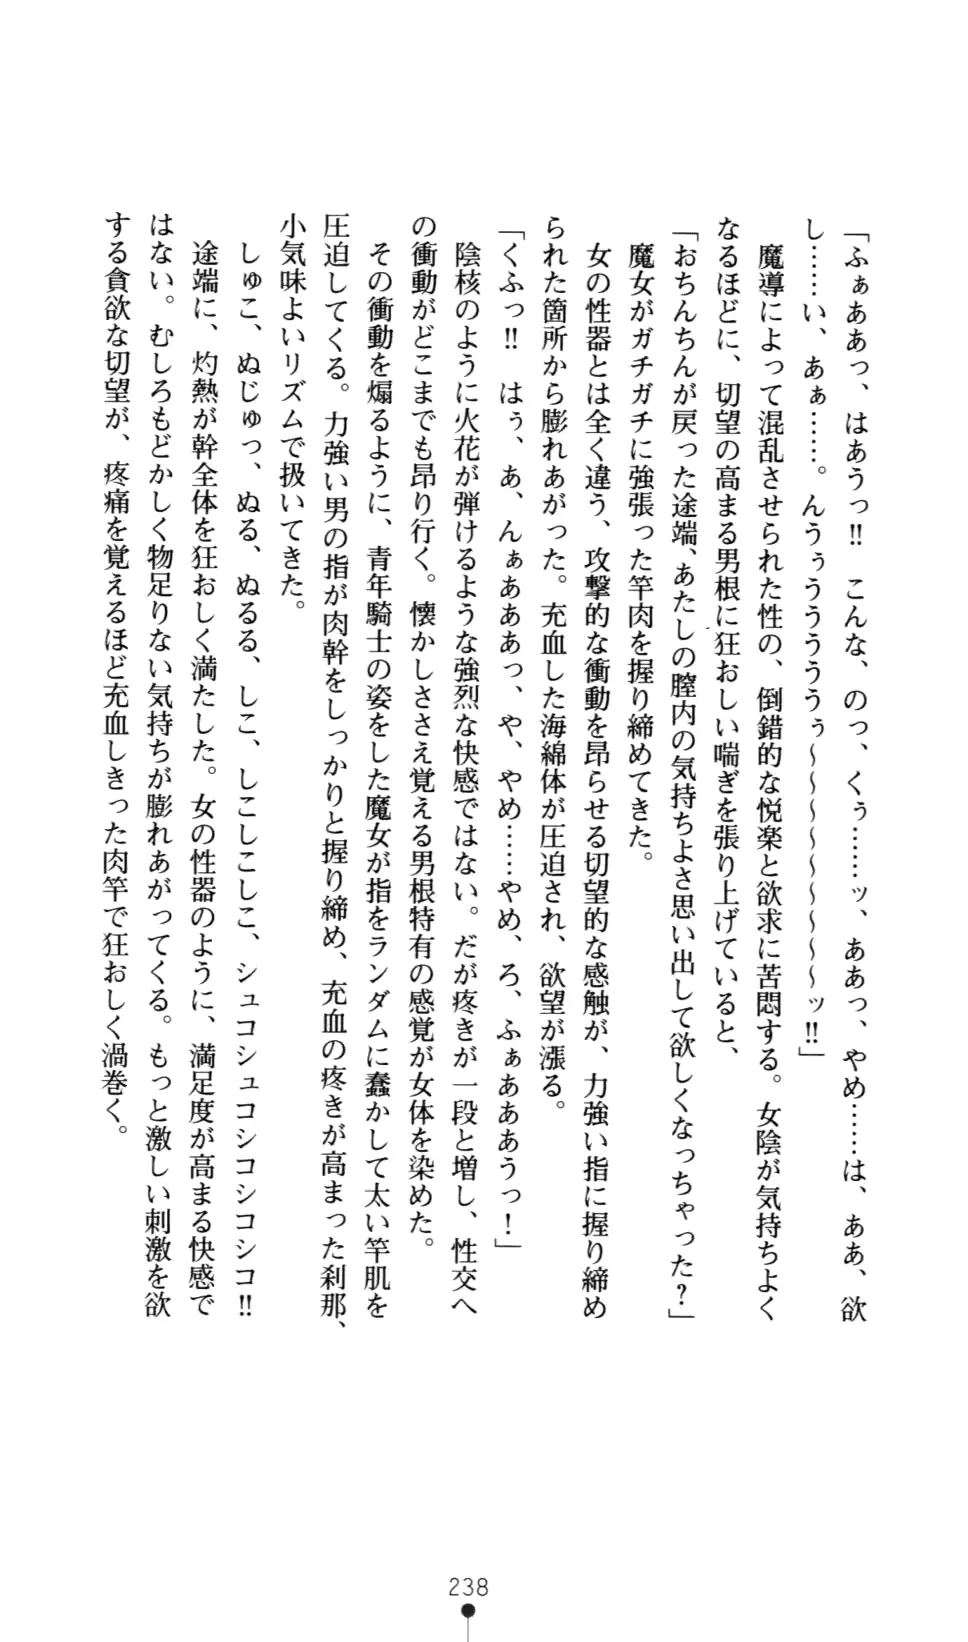 「ふぁああっ、はあうっ!! こんな、のっ、くぅ……ッ、ああっ、やめ……は、ああ、欲
し……い、あぁ……。んうぅうううぅ～～～～～～ッ!!」
　魔導によって混乱させられた性の、倒錯的な悦楽と欲求に苦悶する。女陰が気持ちよく
なるほどに、切望の高まる男根に狂おしい喘ぎを張り上げていると、
「おちんちんが戻った途端、あたしの膣内の気持ちよさ思い出して欲しくなっちゃった？」
　魔女がガチガチに強張った竿肉を握り締めてきた。
　女の性器とは全く違う、攻撃的な衝動を昂らせる切望的な感触が、力強い指に握り締め
られた箇所から膨れあがった。充血した海綿体が圧迫され、欲望が漲る。
「くふっ!! はぅ、あ、んぁあああっ、や、やめ……やめ、ろ、ふぁあああうっ！」
　陰核のように火花が弾けるような強烈な快感ではない。だが疼きが一段と増し、性交へ
の衝動がどこまでも昂り行く。懐かしささえ覚える男根特有の感覚が女体を染めた。
　その衝動を煽るように、青年騎士の姿をした魔女が指をランダムに蠢かして太い竿肌を
圧迫してくる。力強い男の指が肉幹をしっかりと握り締め、充血の疼きが高まった刹那、
小気味よいリズムで扱いてきた。
　しゅこ、ぬじゅっ、ぬる、ぬるる、しこ、しこしこしこ、シュコシュコシコシコシコ!!
　途端に、灼熱が幹全体を狂おしく満たした。女の性器のように、満足度が高まる快感で
はない。むしろもどかしく物足りない気持ちが膨れあがってくる。もっと激しい刺激を欲
する貪欲な切望が、疼痛を覚えるほど充血しきった肉竿で狂おしく渦巻く。
238